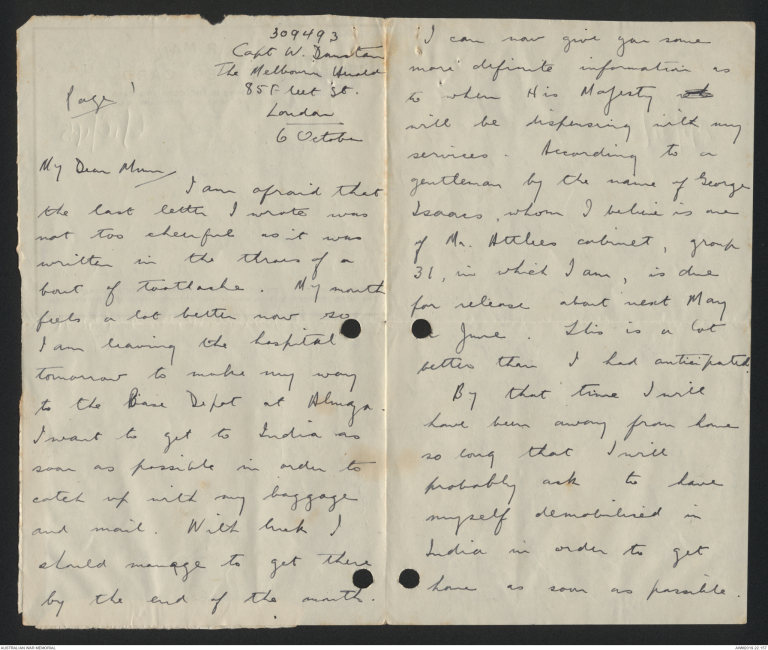 309493
Capt W. Dunstan
The Melbourne Herald
85 Fleet St.
London
6 October
Page 1
My Dear Mum
I am afraid that
the last letter I wrote was
not too cheerful as it was
written in the throes of a
bout of toothache. My mouth
feels a lot better now so
I am leaving the hospital
tomorrow to make my way
to the Base Depot at Almaza.
I want to get to India as
soon as possible in order to
catch up with my baggage
and mail. With luck I
should manage to get there
by the end of the month.
I can now give you some
more definite information as
to when His Majesty
will be dispensing with my
services. According to a
gentleman by the name of George
Isaacs, whom I believe is one
of Mr. Attlees cabinet, group
31, in which I am, is due
for release about next May
or June. This is a lot
better than I had anticipated.
By that time I will
have been away from home
so long that I will
probably ask to have
myself demobilised in
India in order to get
home as soon as possible.
AUSTRALIAN WAR MEMORIAL